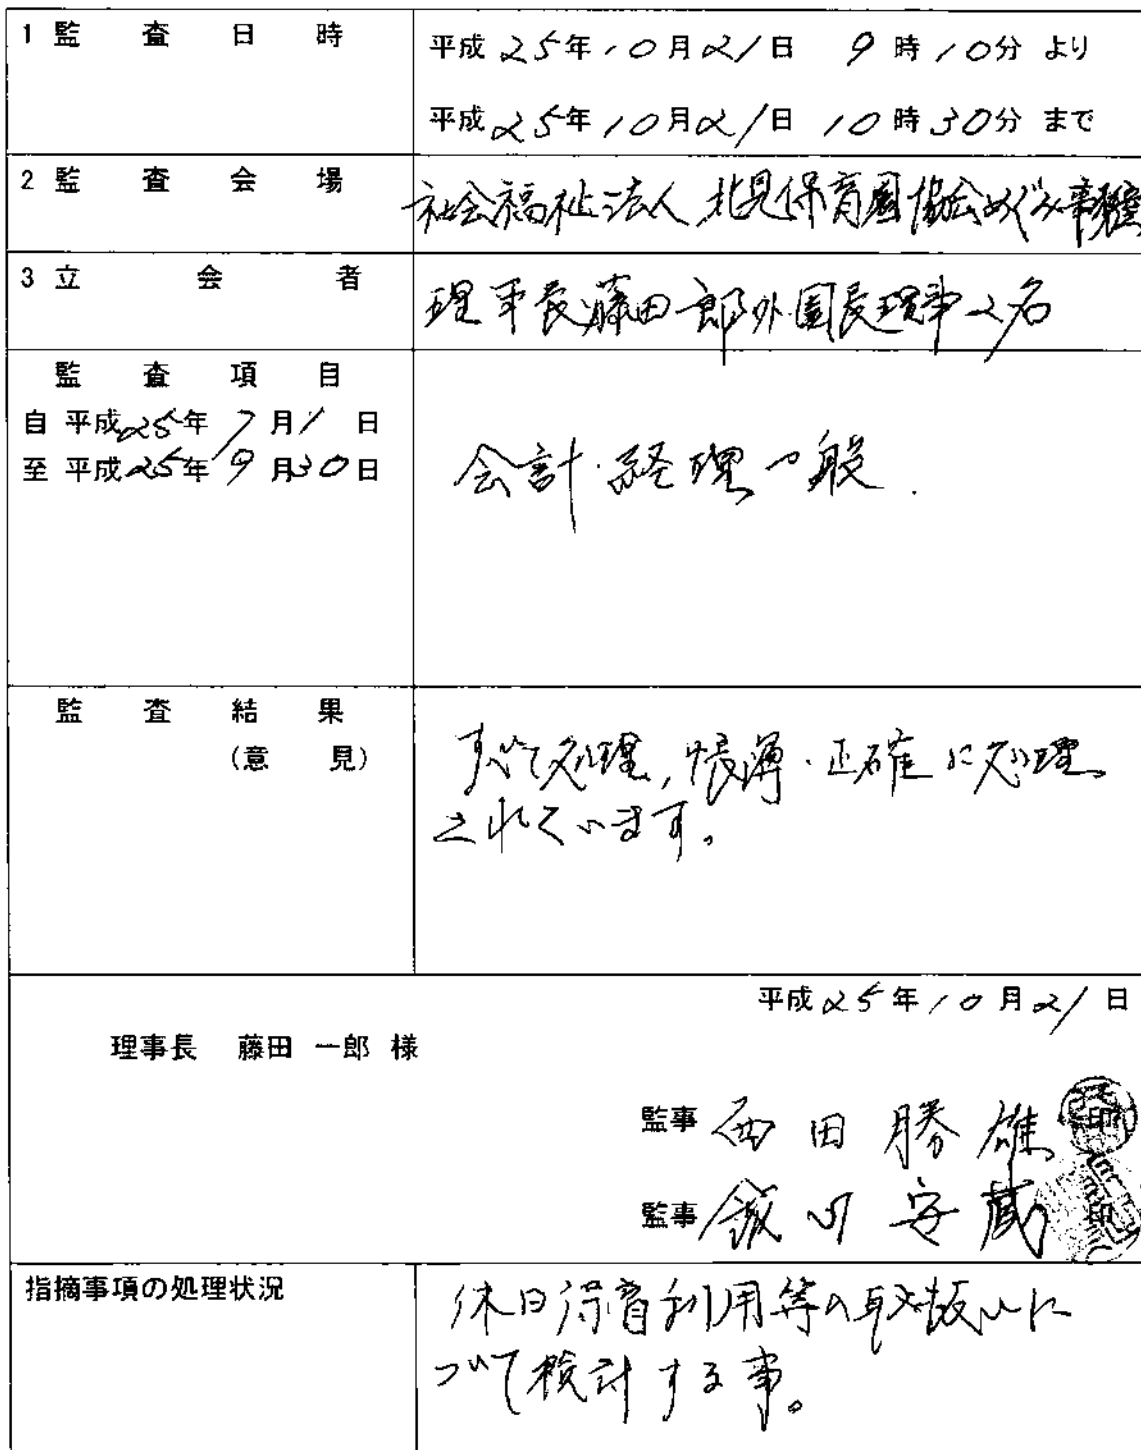 1 監査日時
平成25年10月21日 9時10分 より
平成25年10月21日 10時30分 まで
2 監査会場
社会福祉法人 北見保育園協会めぐみ事務室
3 立会者
理事長藤田一郎外園長理事2名
監査項目
自 平成25年7月1日
至 平成25年9月30日
会計・経理一般.
監査結果
(意見)
すべて処理, 帳簿・正確に処理
されています。
平成25年10月21日
理事長 藤田 一郎 様
監事 西田勝雄 印
監事 安蔵 印
指摘事項の処理状況
休日保育利用等の取扱いに
ついて検討する事。